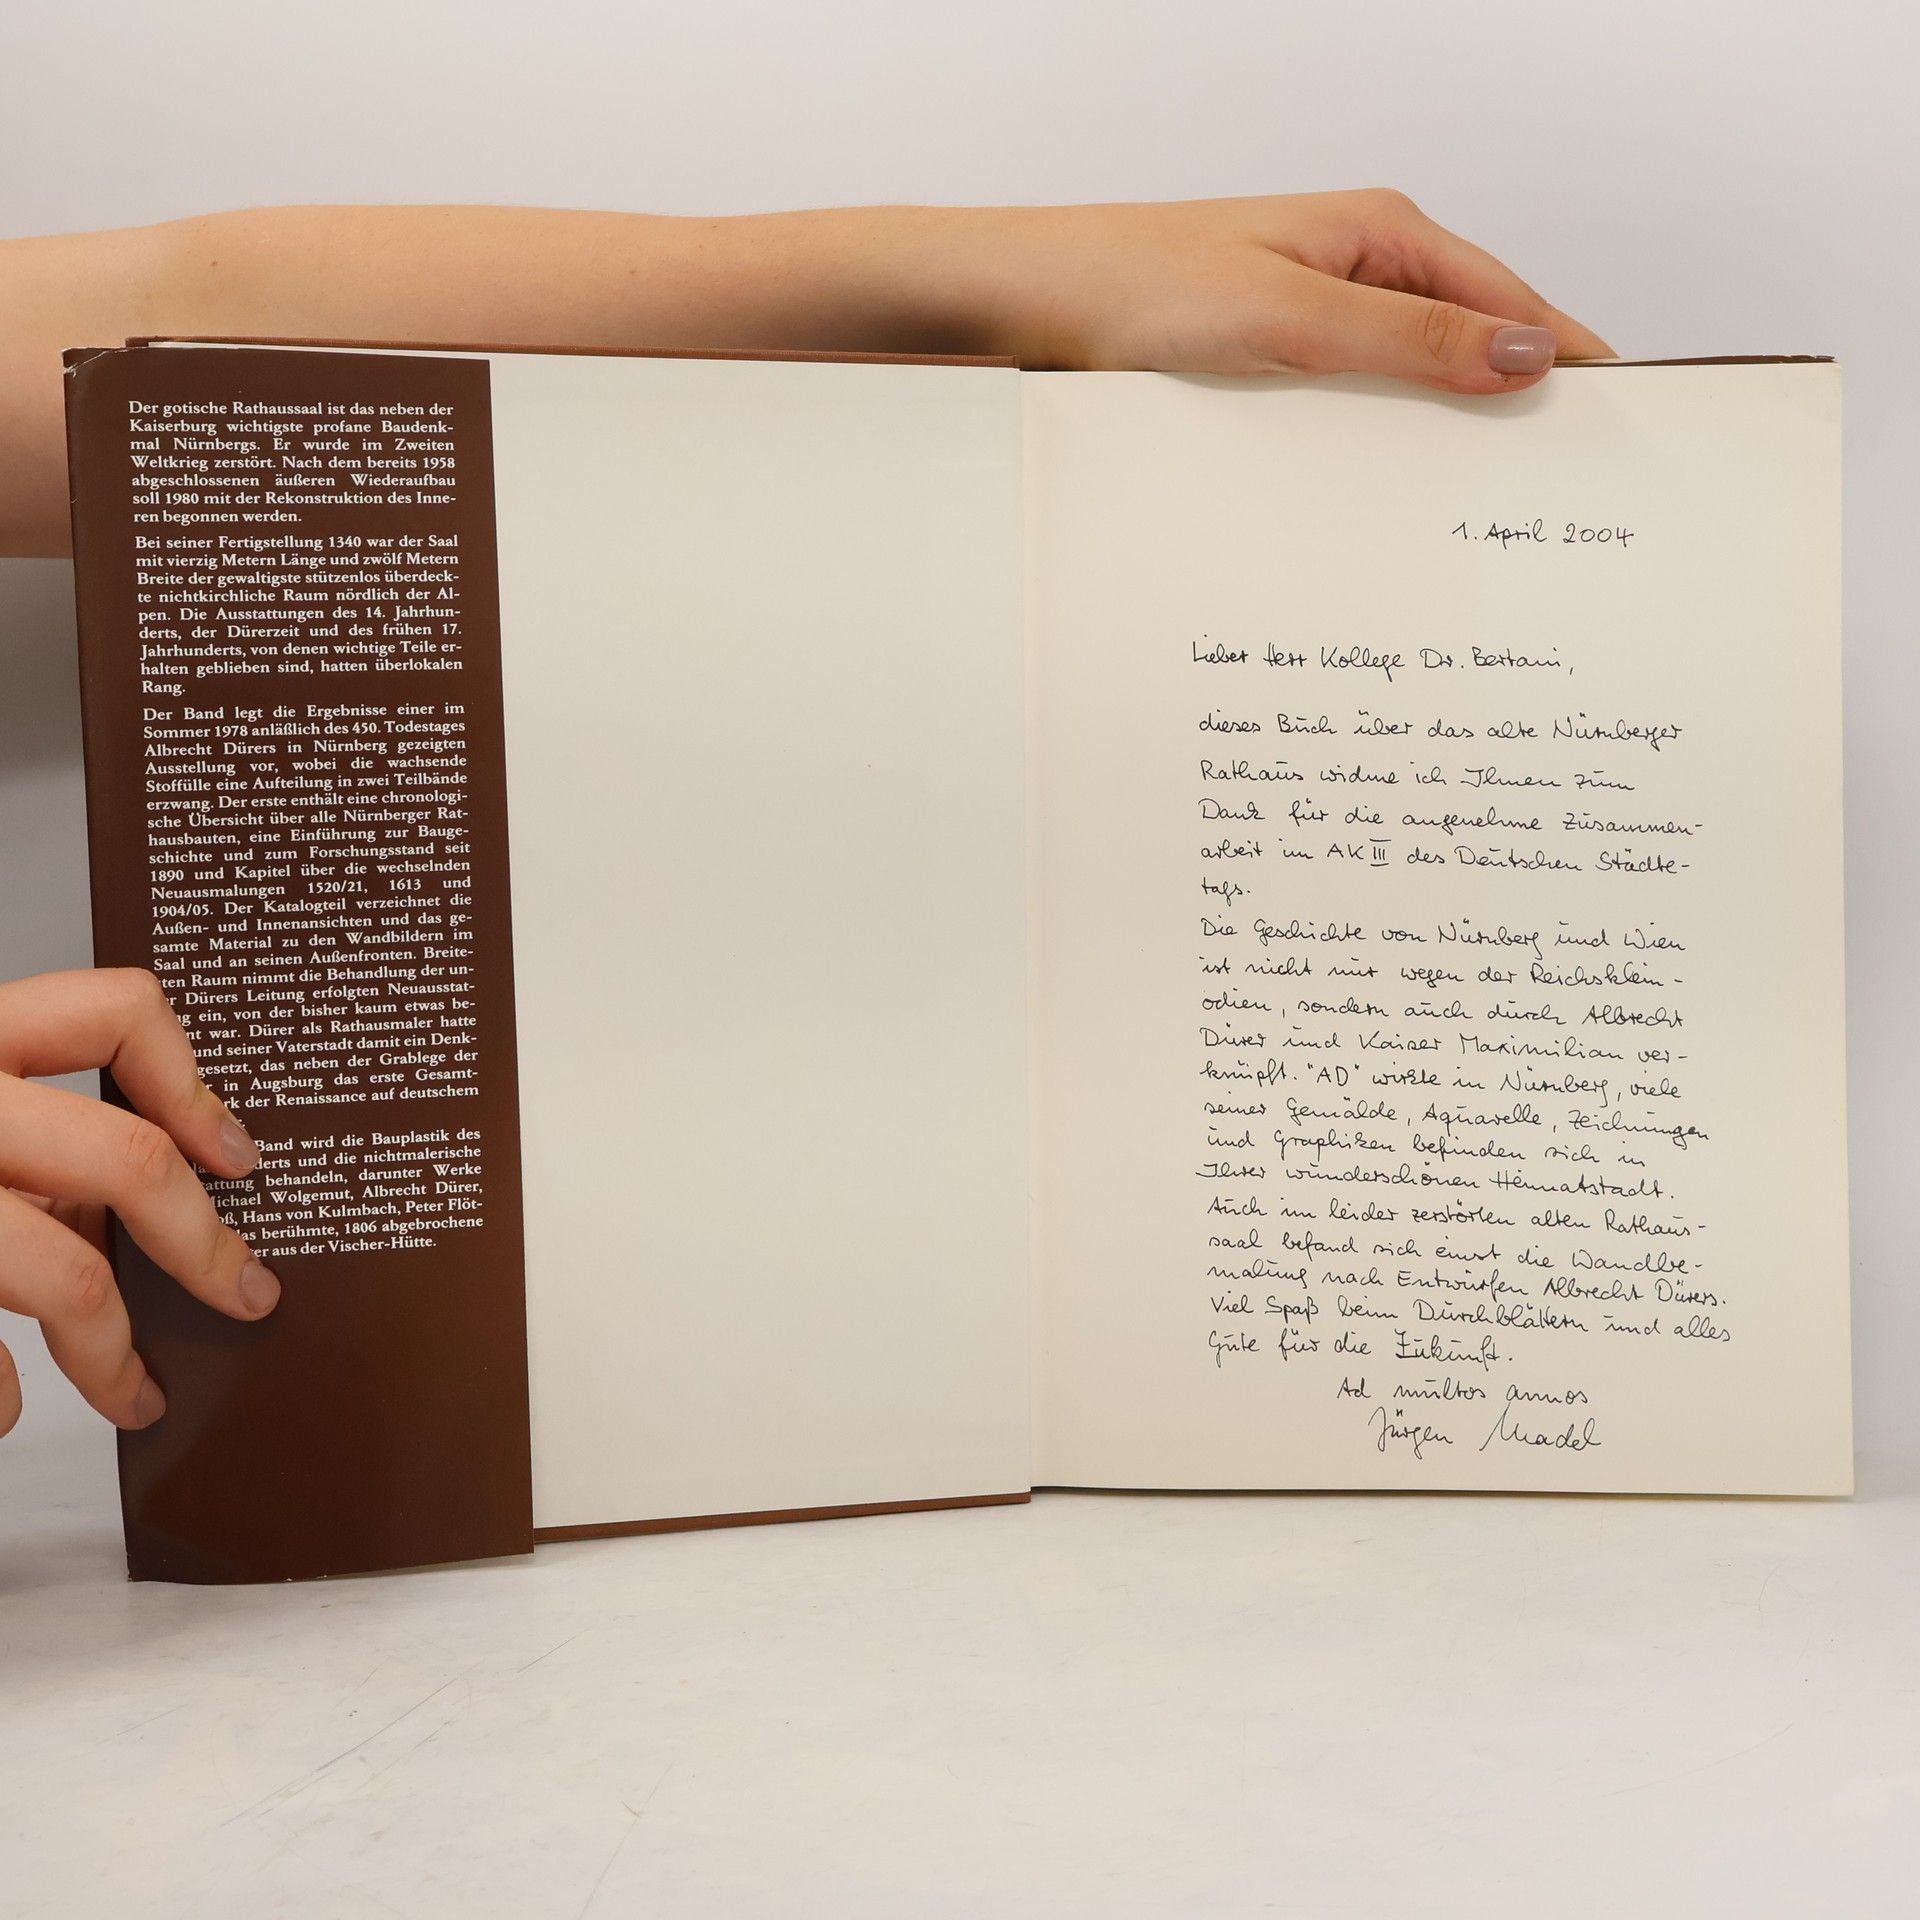 Der gotische Rathaussaal ist das neben der
Kaiserburg wichtigste profane Baudenk-
mal Nürnbergs. Er wurde im Zweiten
Weltkrieg zerstört. Nach dem bereits 1958
abgeschlossenen äußeren Wiederaufbau
soll 1980 mit der Rekonstruktion des Inne-
ren begonnen werden.
Bei seiner Fertigstellung 1340 war der Saal
mit vierzig Metern Länge und zwölf Metern
Breite der gewaltigste stützenlos überdeck-
te nichtkirchliche Raum nördlich der Al-
pen. Die Ausstattungen des 14. Jahrhun-
derts, der Dürerzeit und des frühen 17.
Jahrhunderts, von denen wichtige Teile er-
halten geblieben sind, hatten überlokalen
Rang.
Der Band legt die Ergebnisse einer im
Sommer 1978 anläßlich des 450. Todestages
Albrecht Dürers in Nürnberg gezeigten
Ausstellung vor, wobei die wachsende
Stoffülle eine Aufteilung in zwei Teilbände
erzwang. Der erste enthält eine chronologi-
sche Übersicht über alle Nürnberger Rat-
hausbauten, eine Einführung zur Bauge-
schichte und zum Forschungsstand seit
1890 und Kapitel über die wechselnden
Neuausmalungen 1520/21, 1613 und
1904/05. Der Katalogteil verzeichnet die
Außen- und Innenansichten und das ge-
samte Material zu den Wandbildern im
Saal und an seinen Außenfronten. Breite-
ten Raum nimmt die Behandlung der un-
Dürers Leitung erfolgten Neuausstat-
ein, von der bisher kaum etwas be-
war. Dürer als Rathausmaler hatte
und seiner Vaterstadt damit ein Denk-
gesetzt, das neben der Grablege der
in Augsburg das erste Gesamt-
der Renaissance auf deutschem
Band wird die Bauplastik des
und die nichtmalerische
behandeln, darunter Werke
Michael Wolgemut, Albrecht Dürer,
Hans von Kulmbach, Peter Flöt-
das berühmte, 1806 abgebrochene
aus der Vischer-Hütte.
1. April 2004
Lieber Herr Kollege Dr. Bertani,
dieses Buch über das alte Nürnberger
Rathaus widme ich Ihnen zum
Dank für die angenehme Zusammen-
arbeit im AK III des Deutschen Städte-
tags.
Die Geschichte von Nürnberg und Wien
ist nicht nur wegen der Reichsklein-
odien, sondern auch durch Albrecht
Dürer und Kaiser Maximilian ver-
knüpft. "AD" wirkte in Nürnberg, viele
seiner Gemälde, Aquarelle, Zeichnungen
und Graphiken befinden sich in
Ihrer wunderschönen Heimatstadt.
Auch im leider zerstörten alten Rathaus-
saal befand sich einst die Wandbe-
malung nach Entwürfen Albrecht Dürers.
Viel Spaß beim Durchblättern und alles
Gute für die Zukunft.
Ad multos annos
Jürgen Madel